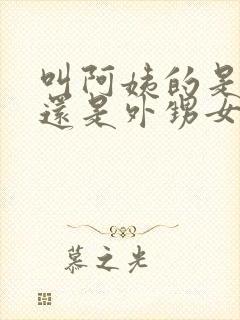 叫阿姨的是
還是外甥女
慕之光